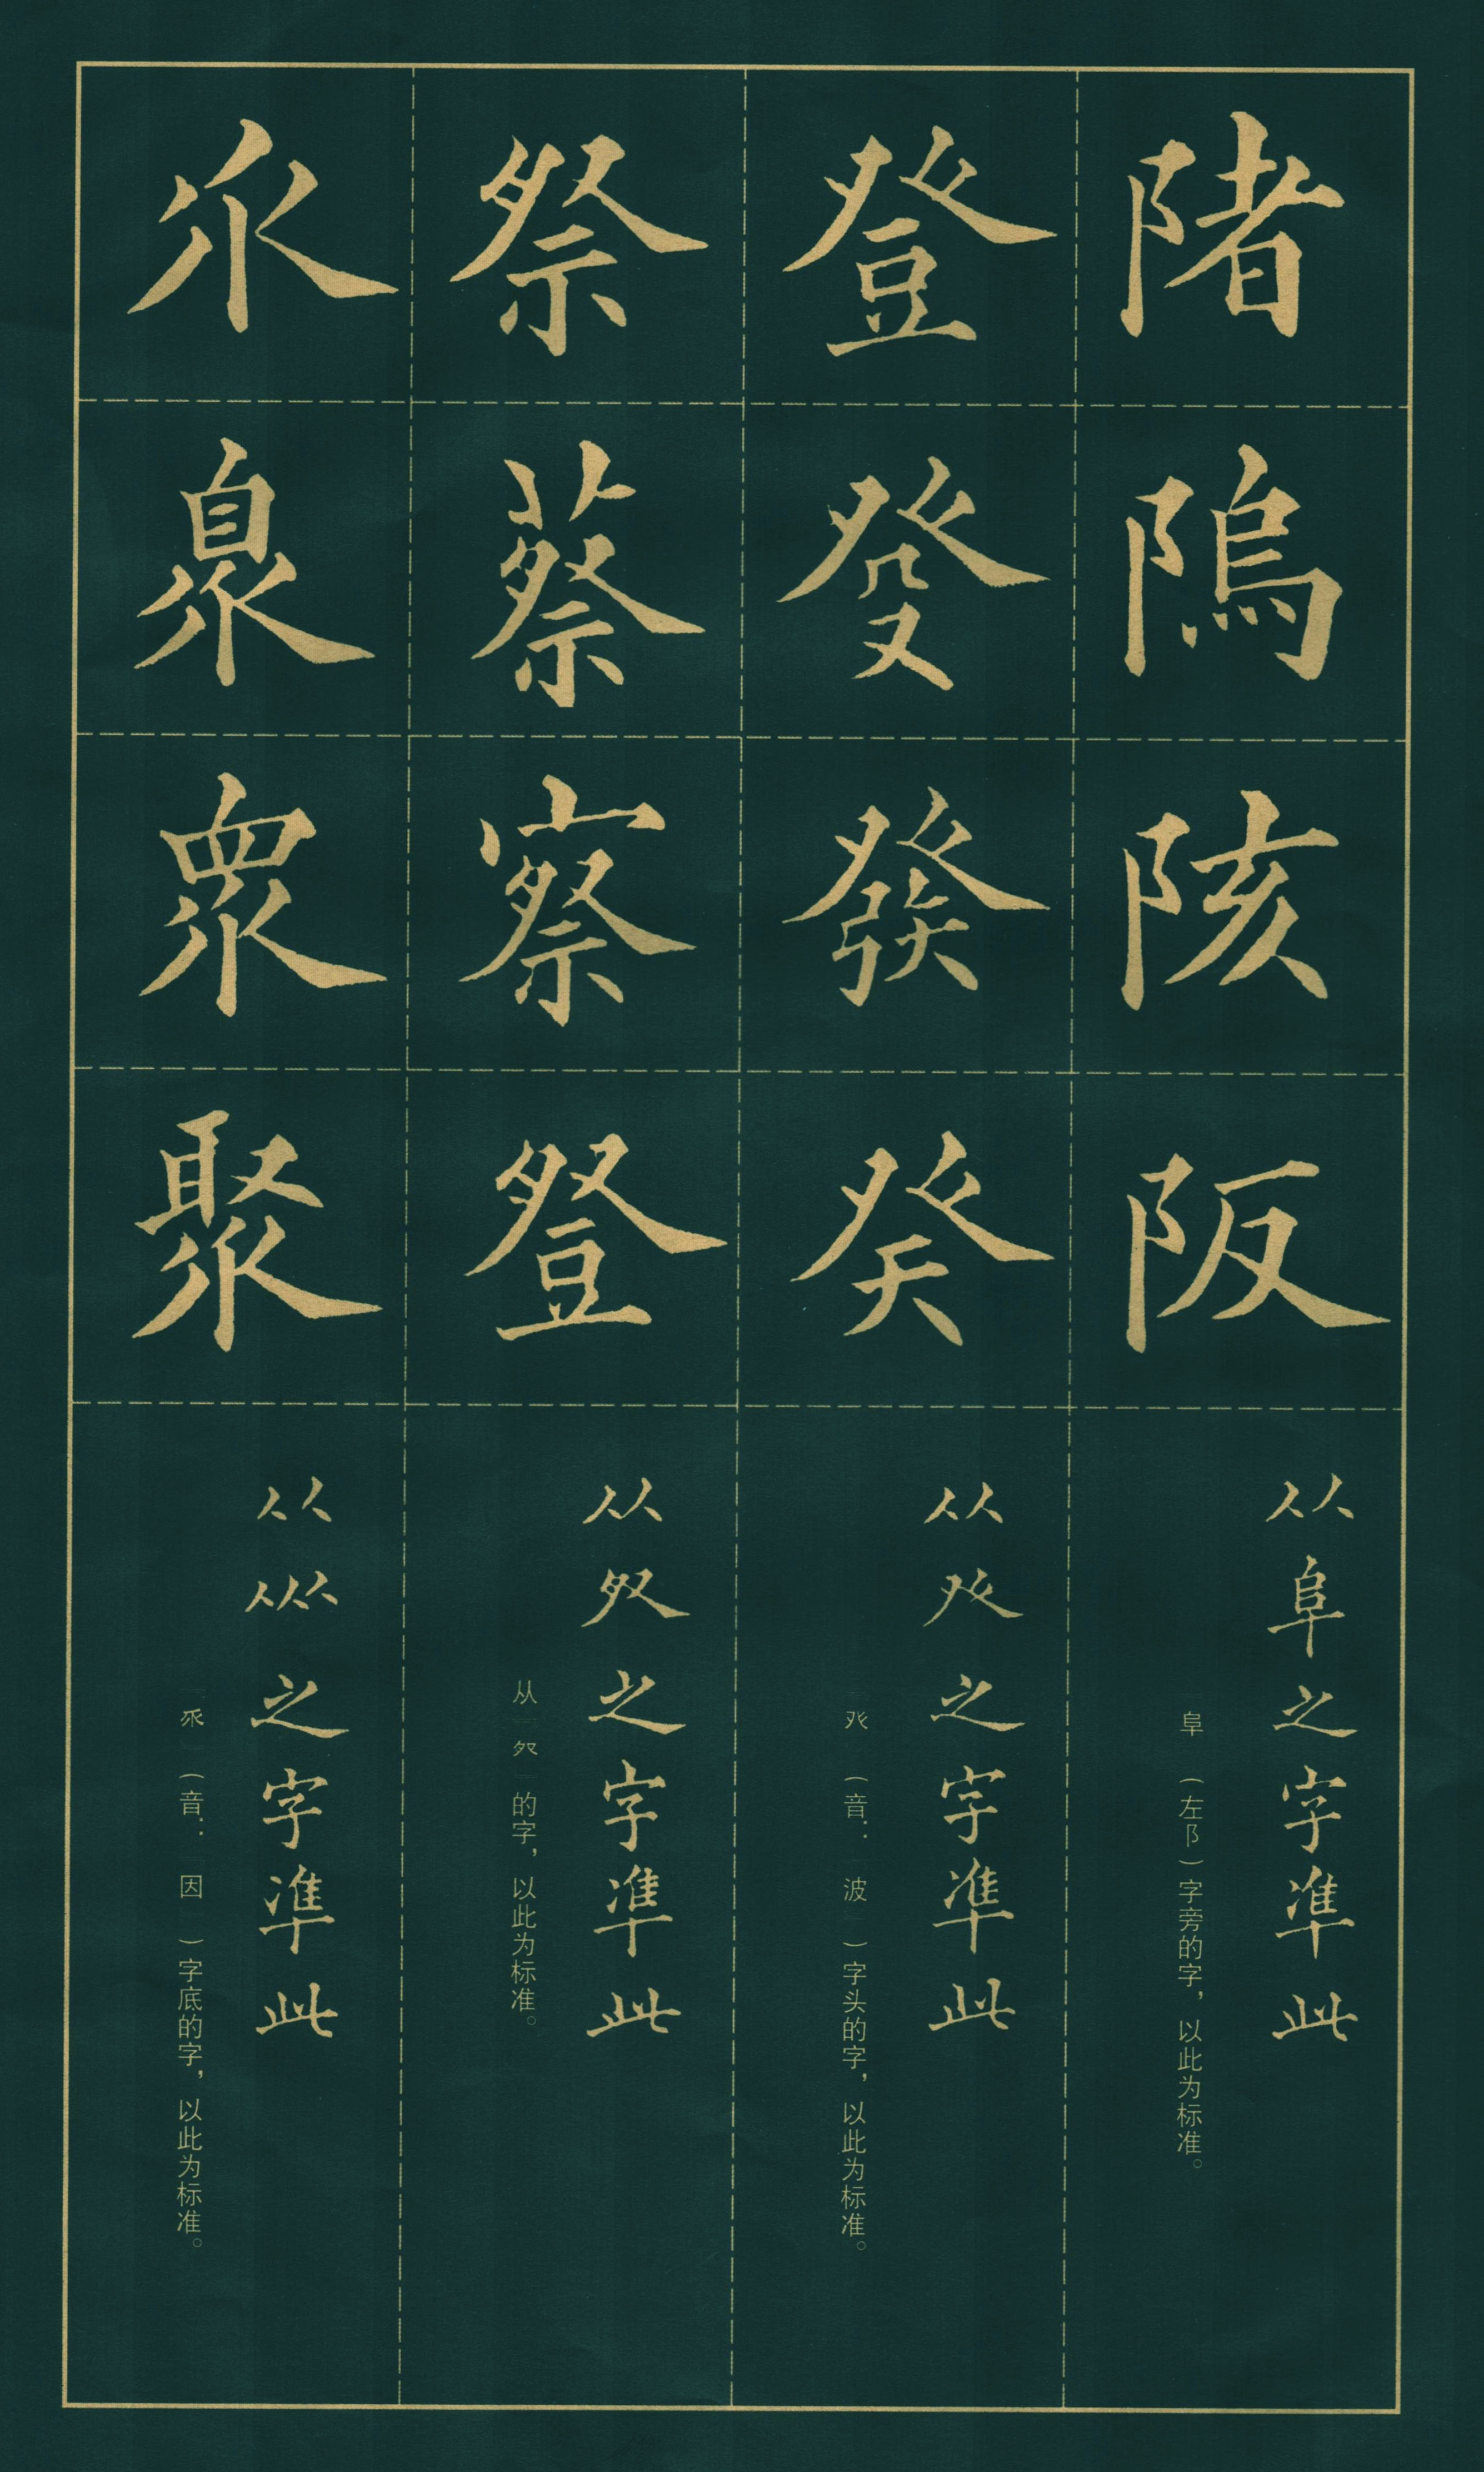 陼隝陔阪
从阜之字準此
阜（左阝）字旁的字，以此为标准。
登癹發癸
从癶之字準此
癶（音：波）字头的字，以此为标准。
祭蔡察豋
从之字準此
从的字，以此为标准。
乑臮眾聚
从㐺之字準此
乑（音：因）字底的字，以此为标准。